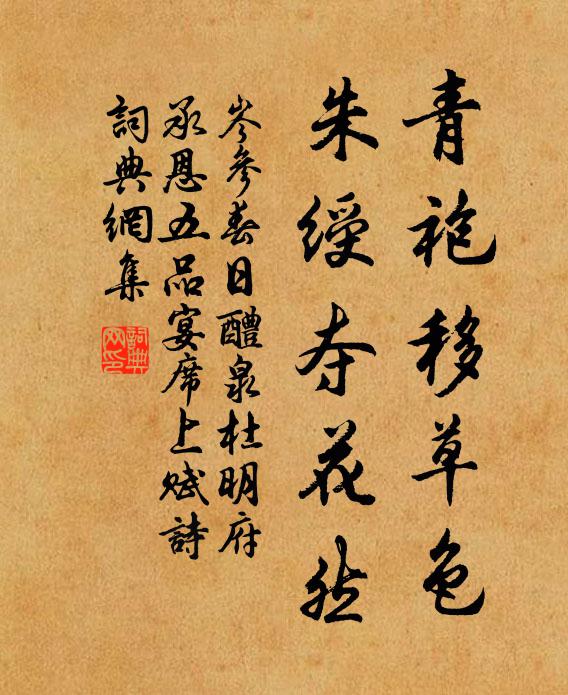 青袍移草色
朱绶夺花然
岑參春日醴泉杜明府
承恩五品宴席上赋詩
詞典網集
詞典网印